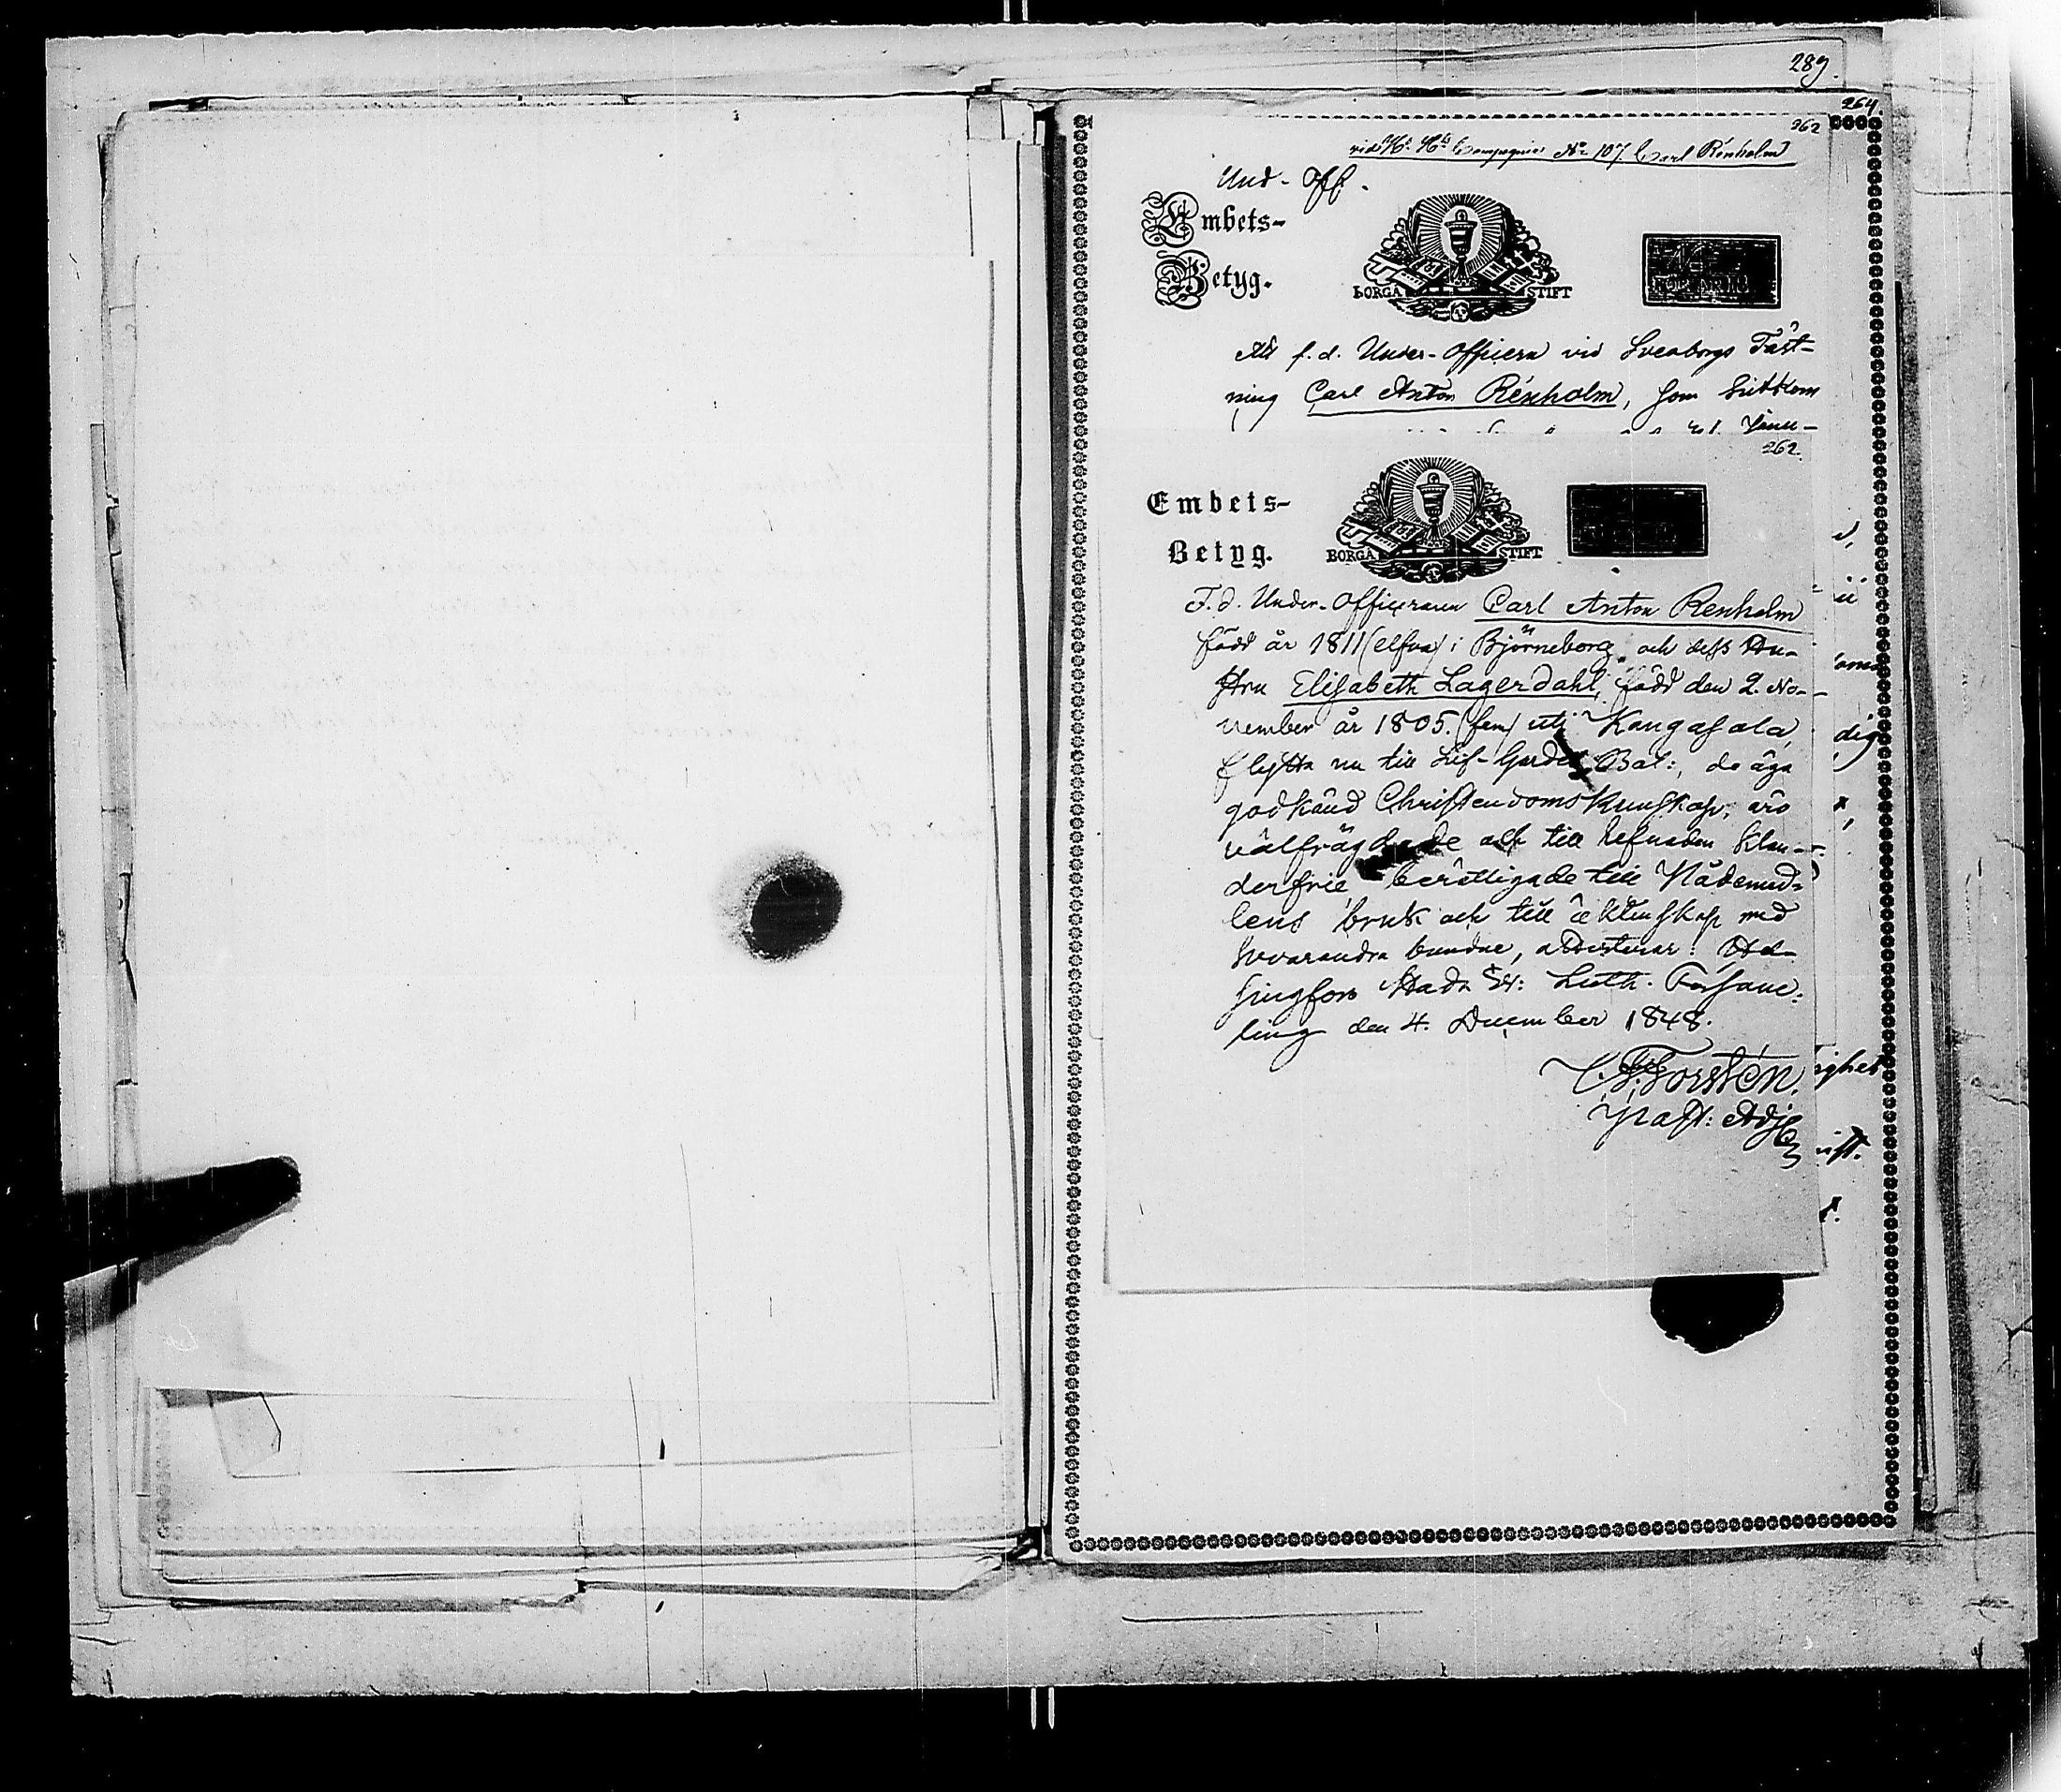 289.
264.
262
vid H. Hs Compagnie No 107 Carl Rénholm
Und-Off.
Embets-
Betyg.
BORGÅ STIFT
Att f. d. Under-Officeren vid Sveaborgs Fäst-
ning Carl Anton Rénholm, som hitkom
Janu-
262.
Embets-
Betyg.
BORGÅ STIFT
F. d. Under-Officeraren Carl Anton Renholm
född år 1811 (elfva) i Björneborg och dess Hu-
stru Elisabeth Lagerdahl, född den 2. No-
vember år 1805. (fem) uti Kangasala,
flytta nu till Lif-Gardes Bat:, de äga
godkänd Christendomskunskap, äro
välfrägdade och till lefnaden klan-
derfrie, berättigade till Nådemed-
lens bruk och till äktenskap med
hvarandra bundne, attesterar: Hel-
singfors Stads Ev: Luth. Försam-
ling den 4. December 1848.
Forstén.
Past: Adj: